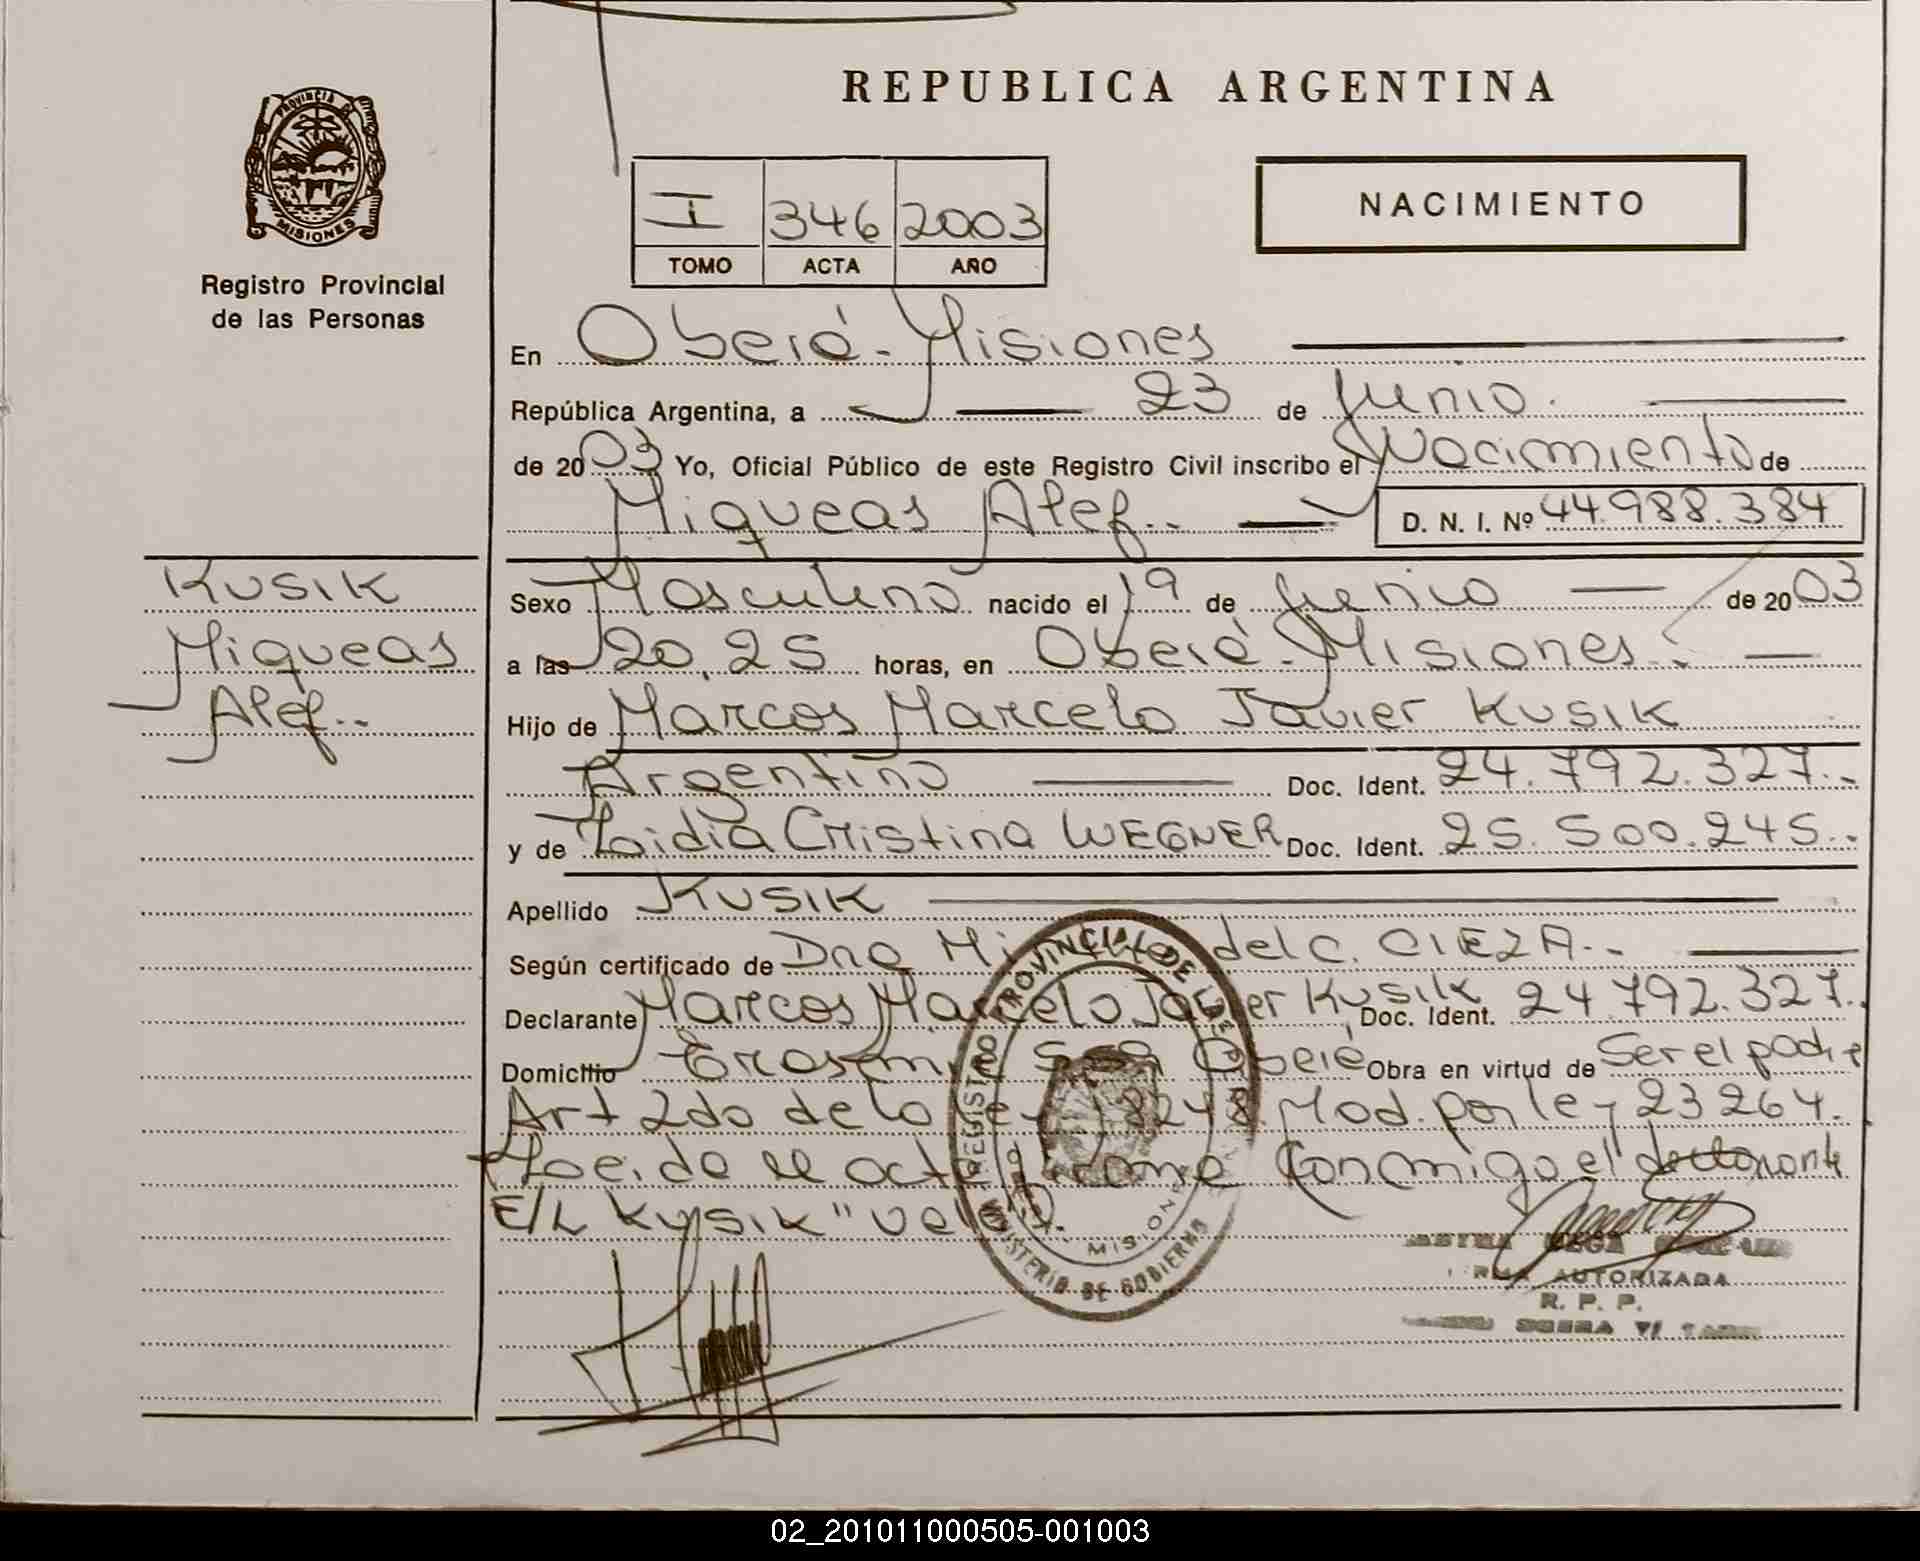 REPUBLICA ARGENTINA
PROVINCIA DE
MISIONES
Registro Provincial
de las Personas
I 346 2003
TOMO ACTA AÑO
NACIMIENTO
En Oberá - Misiones
República Argentina, a 23 de Junio.
de 2003 Yo, Oficial Público de este Registro Civil inscribo el Nacimiento de
Miqueas Alef.. D. N. I. Nº 44.988.384
KUSIK
Miqueas
Alef..
Sexo Masculino nacido el 19 de Junio de 2003
a las 20,25 horas, en Oberá - Misiones.
Hijo de Marcos Marcelo Javier KUSIK
Argentino Doc. Ident. 24.792.327..
y de Lidia Cristina WEGNER Doc. Ident. 25.500.245..
Apellido KUSIK
Según certificado de Dra del C. CIEZA..
Declarante Marcos Marcelo Javier Kusik Doc. Ident. 24.792.327..
Domicilio Oberá Obra en virtud de Ser el padre
Art 2do de la ley 18248. Mod. por ley 23264.
Leida el acta firma Conmigo el declarante
E/L Kusik" Vale.
REGISTRO PROVINCIAL DE
MINISTERIO DE GOBIERNO
MISIONES
AUTORIZADA
R. P. P.
02_201011000505-001003